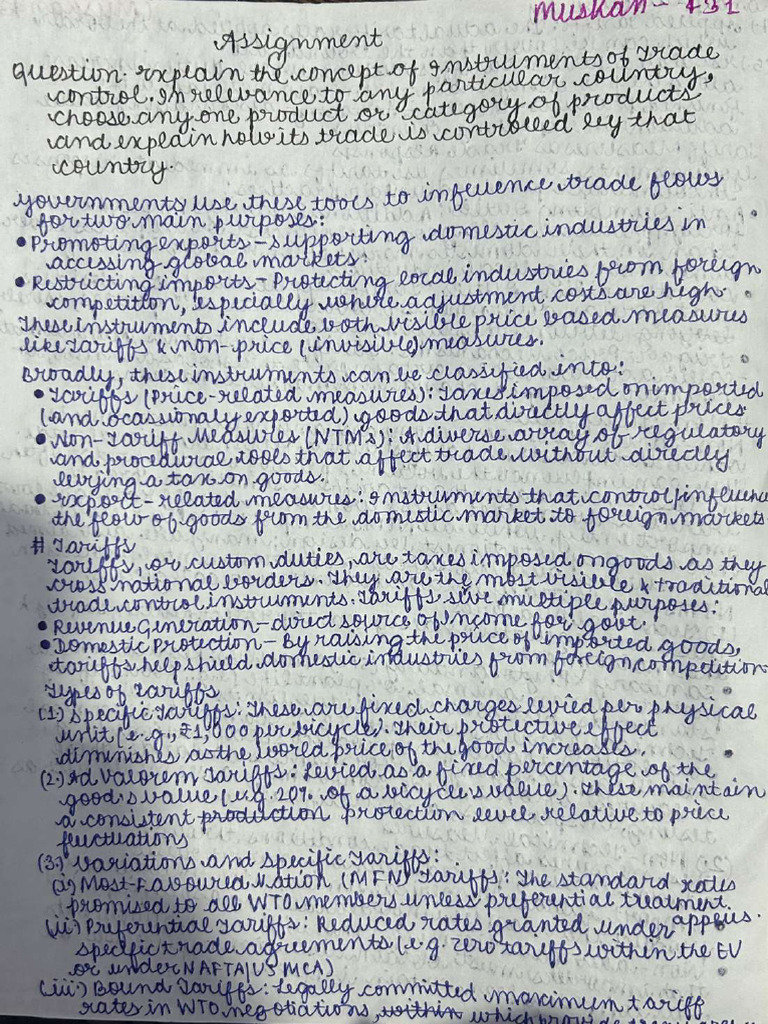 Muskan - 431
Assignment
Question: Explain the concept of Instruments of Trade
control. In relevance to any particular country,
choose any one product or category of products
and explain how its trade is controlled by that
country.
Governments use these tools to influence trade flows
for two main purposes:
• Promoting exports - supporting domestic industries in
accessing global markets.
• Restricting imports - Protecting local industries from foreign
competition, especially where adjustment costs are high.
These instruments include both visible price based measures
like Tariffs & non-price (invisible) measures.
Broadly, these instruments can be classified into:
• Tariffs (Price-related measures): Taxes imposed on imported
(and ocassionaly exported) goods that directly affect prices
• Non-Tariff Measures (NTMs): A diverse array of regulatory
and procedural tools that affect trade without directly
levying a tax on goods.
• Export-related measures: Instruments that control/influence
the flow of goods from the domestic market to foreign markets
# Tariffs
Tariffs, or custom duties, are taxes imposed on goods as they
cross national borders. They are the most visible & traditional
trade control instruments. Tariffs sive multiple purposes:
• Revenue Generation - direct source of Income for govt.
• Domestic Protection - By raising the price of imported goods,
tariffs help shield domestic industries from foreign competition
Types of Tariffs
(1.) Specific Tariffs: These are fixed charges levied per physical
unit (e.g., ₹1,000 per bicycle). Their protective effect
diminishes as the world price of the good increases.
(2.) Ad Valorem Tariffs: Levied as a fixed percentage of the
good's value (e.g. 20% of a bicycle's value). These maintain
a consistent production protection level relative to price
fluctuations
(3.) Variations and Specific Tariffs:
(i) Most-Favoured Nation (MFN) Tariffs: The standard rates
promised to all WTO members unless preferential treatment
applies.
(ii) Preferential Tariffs: Reduced rates granted under
specific trade agreements (e.g. zero tariffs within the EU
or under NAFTA/USMCA)
(iii) Bound Tariffs: Legally committed maximum tariff
rates in WTO negotiations, within which provide